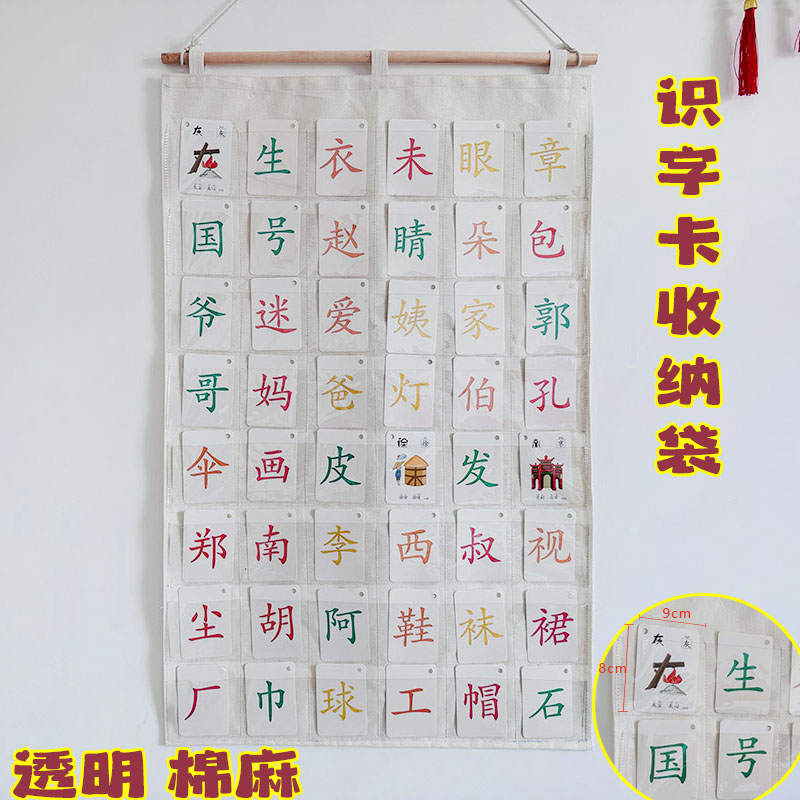 识字卡收纳袋
灰 灰 生 衣 未 眼 章
国 号 赵 睛 朵 包
爷 迷 爱 姨 家 郭
哥 妈 爸 灯 伯 孔
伞 画 皮 徐 发
郑 南 李 西 叔 视
尘 胡 阿 鞋 袜 裙
厂 巾 球 工 帽 石
9cm
8cm
灰 灰 生
国 号
透明 棉麻